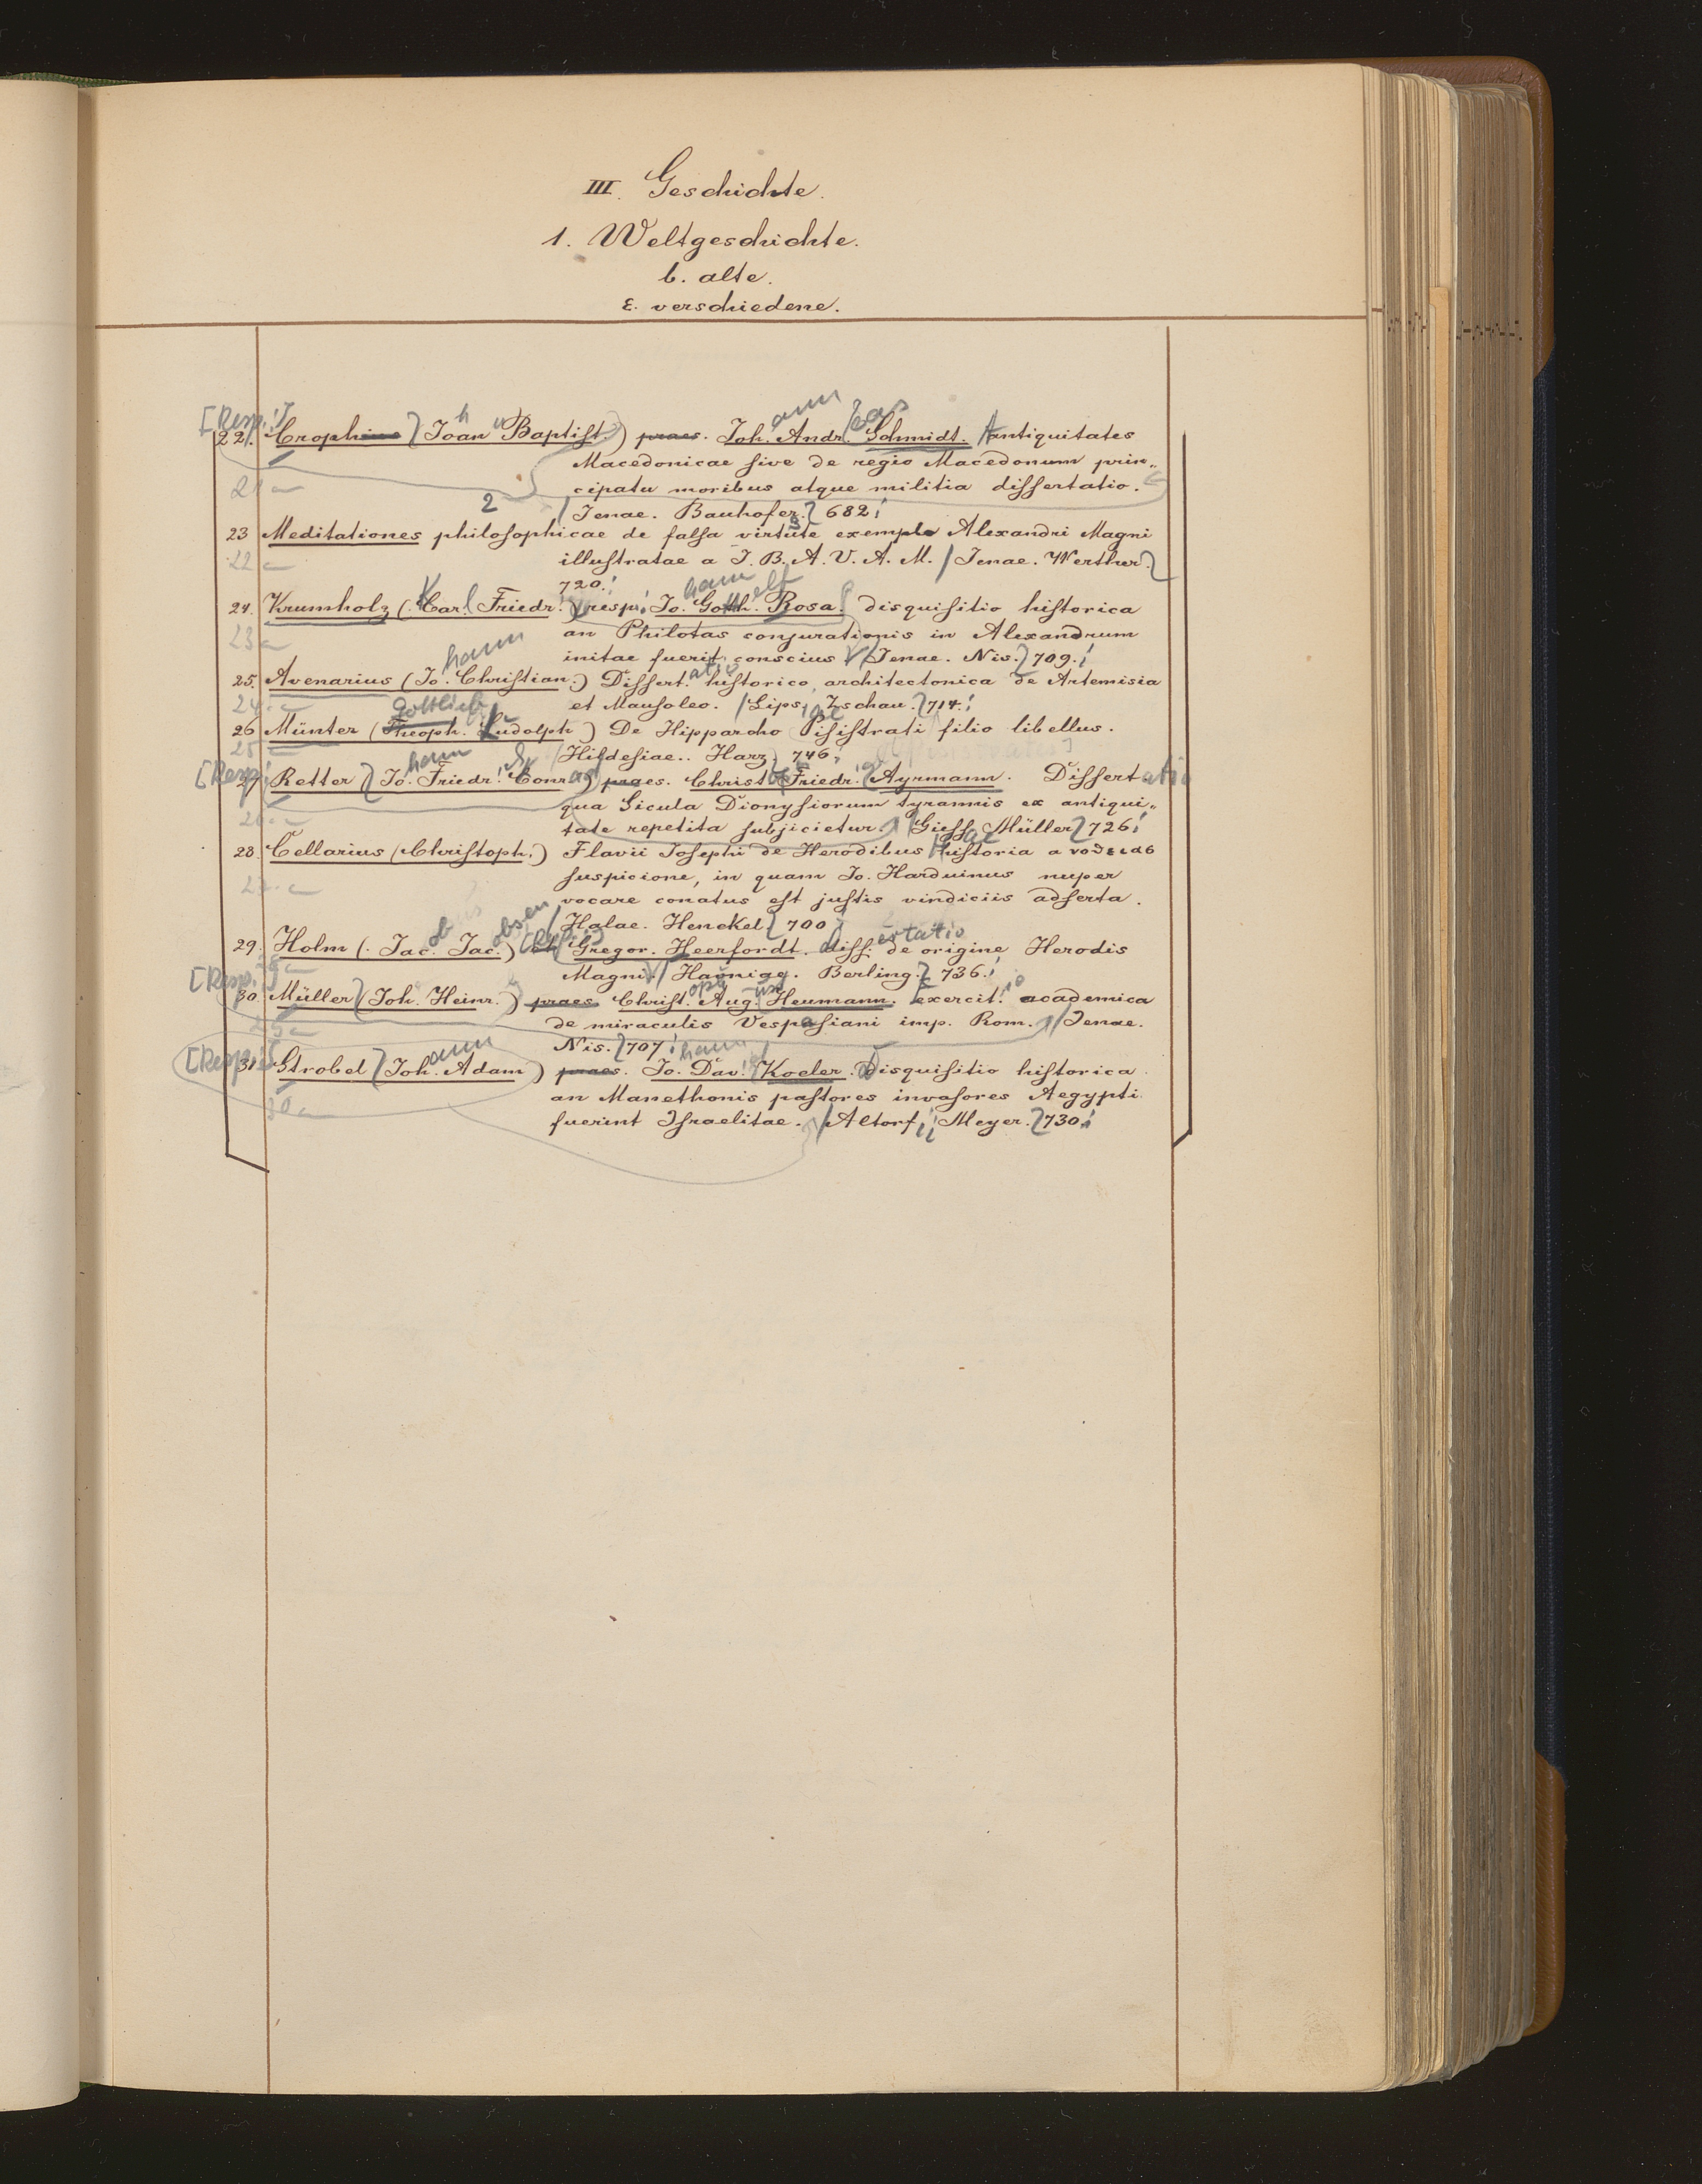 III. Geschichte.
1. Weltgeschichte.
b. alte.
ε. verschiedene.
[Resp.:]
22. Crophius (Joan Baptist.) praes. Joh. Andr. Schmidt. Antiquitates
Macedonicae sive de regio Macedonum prin„
21
cipatu moribus atque militia dissertatio.
2
Jenae. Bauhofer. 682.
23 Meditationes philosophicae de falsa virtute exemplo Alexandri Magni
22
illustratae a J. B. A. V. A. M. Jenae. Werther.
720.
24. Krumholz (Carl Friedr.) resp. Jo. Gotth. Rosa. disquisitio historica
23
an Philotas conjurationis in Alexandrum
initae fuerit conscius Jenae. Nis. 709.
hann
25. Avenarius (Jo. Christian.) Dissert. historico architectonica de Artemisia
24
et Mausoleo. Lips. Zschau. 714.
Gottlieb
26 Münter (Theoph. Ludolph) De Hipparcho Pisistrati filio libellus.
25
Hildesiae.. Harz. 746.
[Resp.:]
27 Retter (Jo. Friedr. Conr.) praes. Christ. Friedr. Ayrmann. Dissertatio
26
qua Sicula Dionysiorum tyrannis ex antiqui„
tate repetita subjicietur. Giess. Müller 726.
28. Cellarius (Christoph.) Flavii Josephi de Herodibus historia a νοθειας
27
suspicione, in quam Jo. Harduinus nuper
vocare conatus est justis vindiciis adserta.
Halae. Henckel 700
29. Holm (Jac. Jac.) et Gregor. Heerfordt. diss. de origine Herodis
Magni. Havniae. Berling. 736.
[Resp.:]
30. Müller (Joh. Heinr.) praes. Christ. Aug. Heumann. Exercit. academica
29
de miraculis Vespasiani imp. Rom. Jenae.
Nis. 707
[Resp.:]
31 Strobel (Joh. Adam) praes. Jo. Dav. Koeler. Disquisitio historica
30
an Manethonis pastores invasores Aegypti
fuerint Israelitae. Altorf. Meyer. 730.